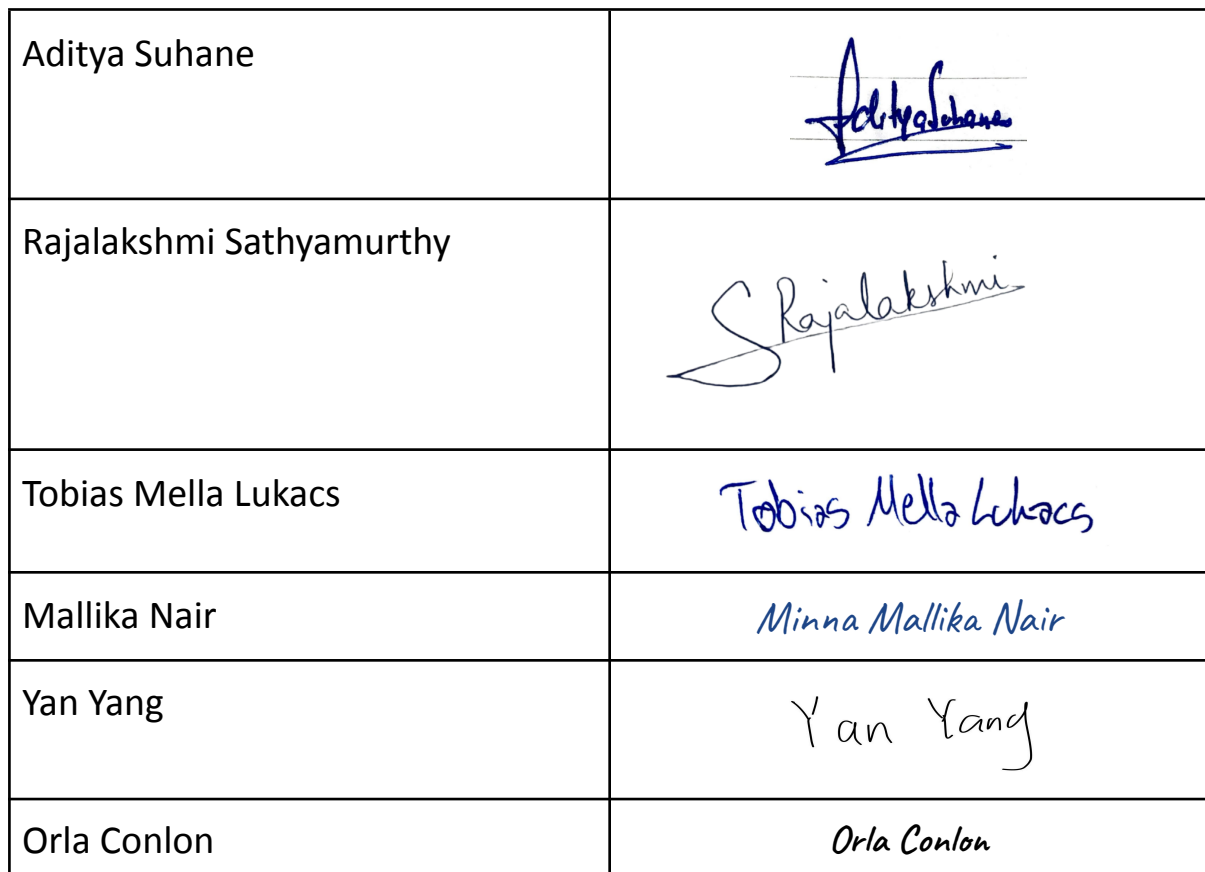 Aditya Suhane
AdityaSuhane
Rajalakshmi Sathyamurthy
S Rajalakshmi
Tobias Mella Lukacs
Tobias Mella Lukacs
Mallika Nair
Minna Mallika Nair
Yan Yang
Yan Yang
Orla Conlon
Orla Conlon